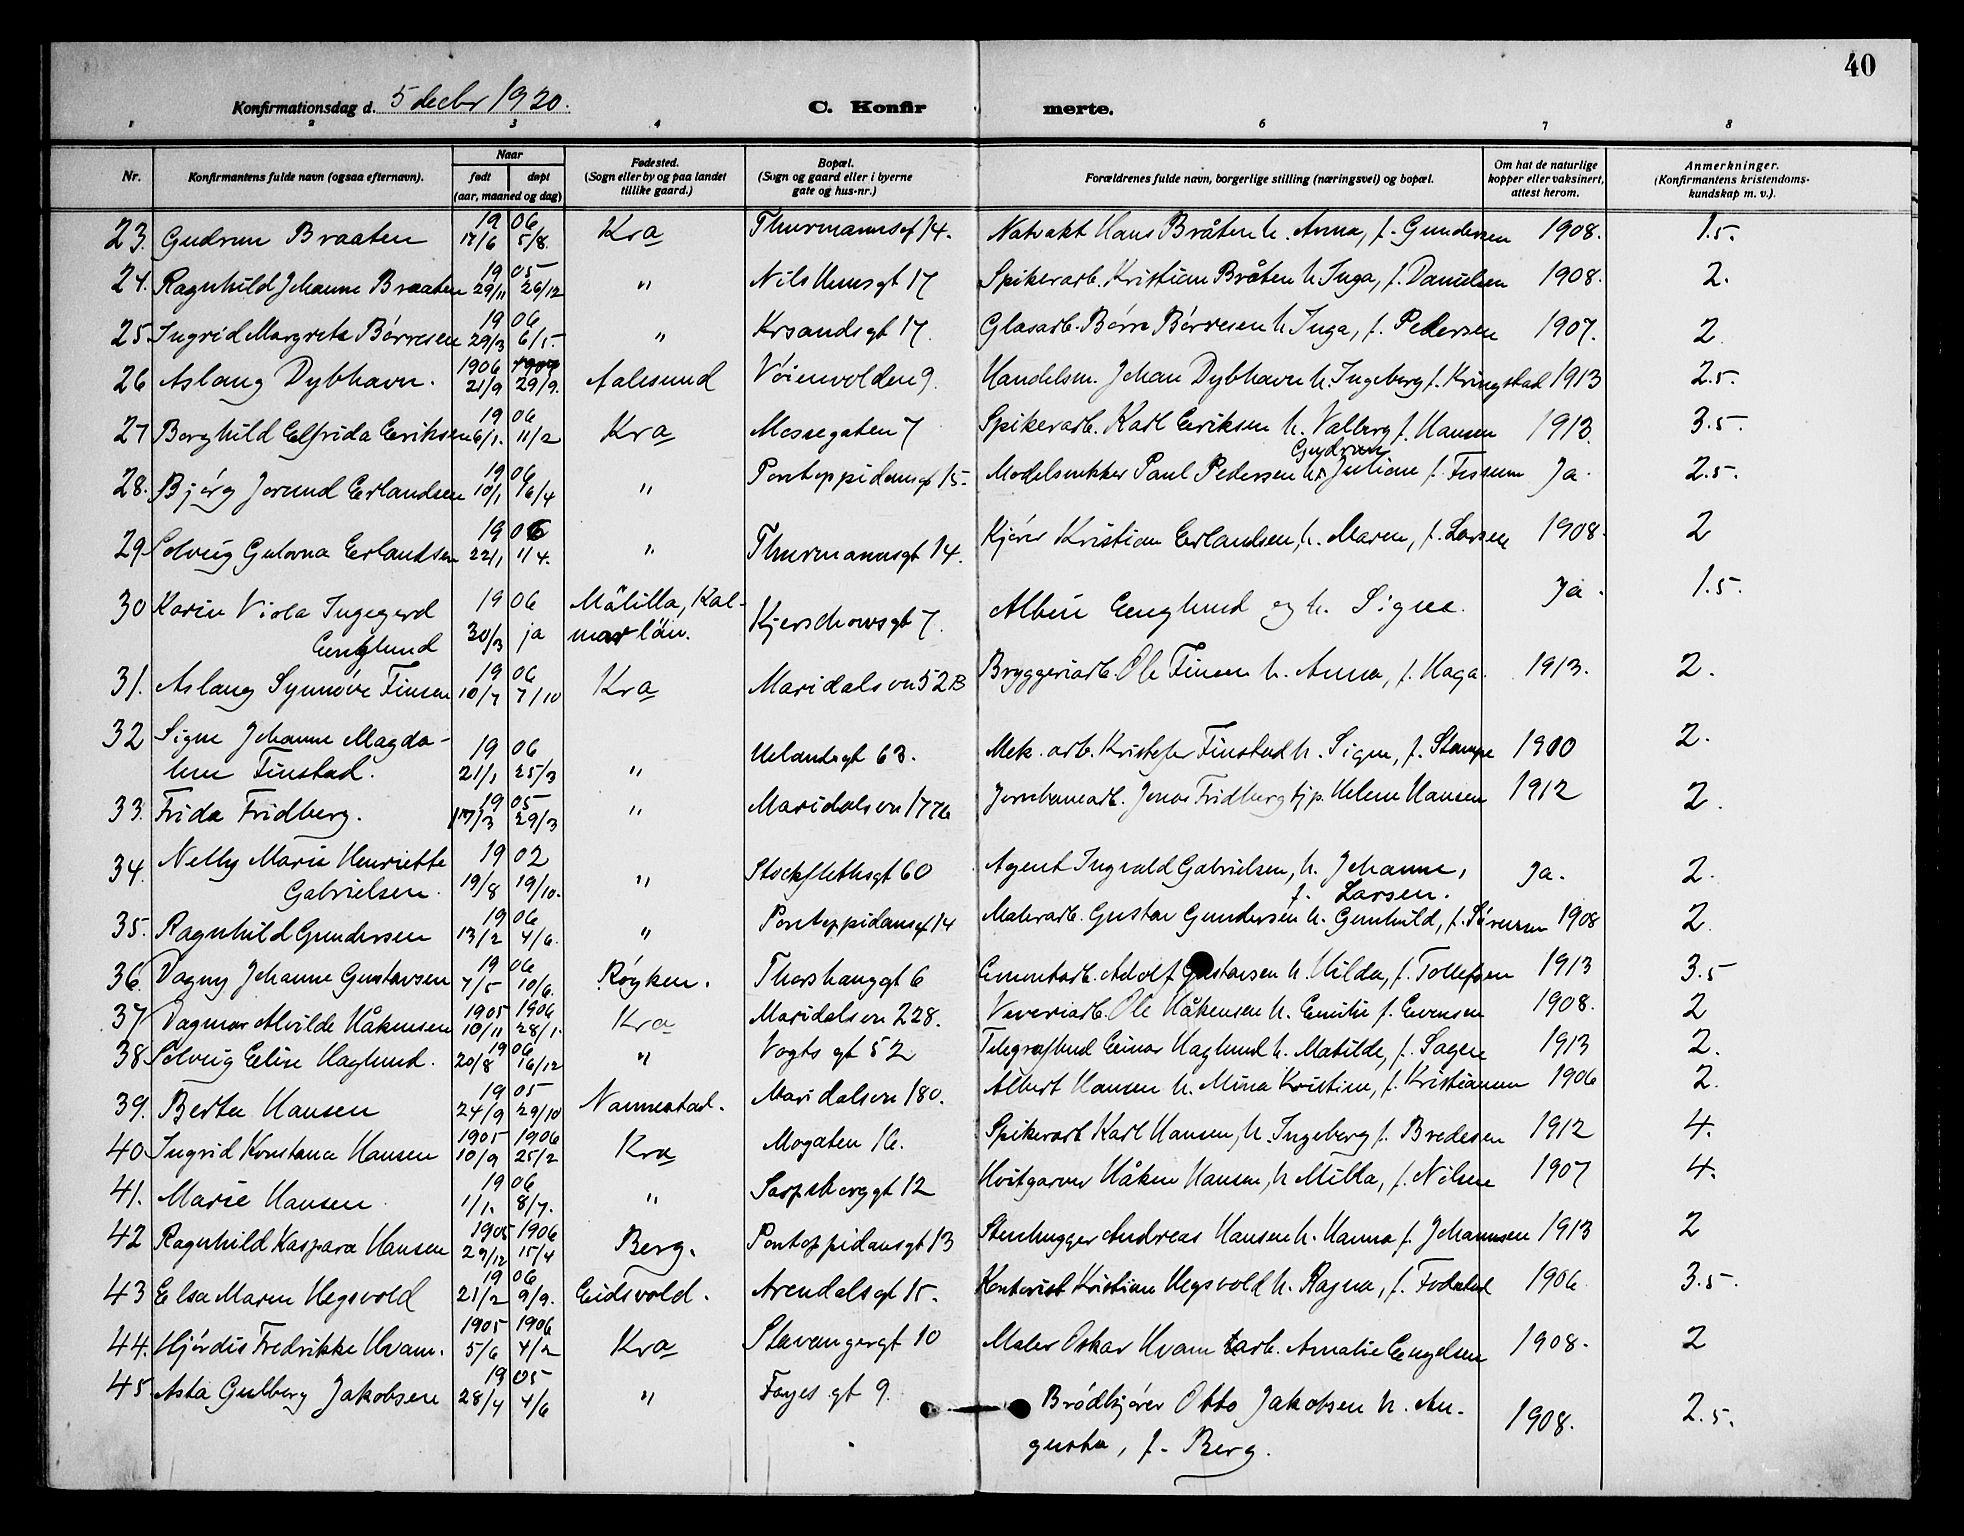 40
Konfirmationsdag d. 5 decbr 1920.
C. Konfirmerte.
1 2 3 4 6 7 8
Nr.
Konfirmantens fulde navn (ogsaa efternavn).
Naar
født døpt
(aar, maaned og dag)
Fødested.
(Sogn eller by og paa landet
tillike gaard.)
Bopæl.
(Sogn og gaard eller i byerne
gate og hus-nr.)
Forældrenes fulde navn, borgerlige stilling (næringsvei) og bopæl.
Om hat de naturlige
kopper eller vaksinert,
attest herom.
Anmerkninger.
(Konfirmantens kristendoms-
kundskap m. v.).
23. Gudrun Braaten 1906 17/6 5/8 Kra Thurmannsgt 14. Natvakt Hans Bråten h. Anna, f. Gundersen 1908. 1.5.
24. Ragnhild Johanne Braaten 1905 29/11 26/12 " Nils Huusgt 17 Spikerarb. Kristian Bråten h. Inga, f. Danielsen 1908. 2.
25 Ingrid Margrete Børresen 1906 29/3 6/5. " Krsandsgt 17. Glasarb. Børre Børresen h. Inga, f. Pedersen 1907. 2
26 Aslaug Dybhavn. 1906 21/9 29/9. Aalesund Vøienvolden 9. Handelsm. Johan Dybhavn h. Ingeborg f. Kringstad 1913 2.5.
27 Borghild Elfrida Eriksen 1906 6/1. 11/2 Kra Mossegaten 7 Spikerarb. Karl Eriksen h. Valborg f. Hansen 1913 3.5.
28. Bjørg Jorund Erlandsen 1906 10/1 16/4 " Pontoppidansgt 15. Modelsnekker Paul Pedersen h. Gudrun Juliane f. Fissum Ja. 2.5.
29 Solveig Gulovna Erlandsen 1906 22/1 1/4. " Thurmannsgt 14. Kjører Kristian Erlandsen, h. Maren, f. Larsen 1908. 2
30 Karin Viola Ingegerd
Englund 1906 30/3 ja Målilla, Kal-
mar län. Kjerschowsgt 7. Albin Englund og h. Signe. Ja. 1.5.
31. Aslaug Synnøve Finsen 1906 10/7 7/10 Kra Maridalsvn 52B Bryggeriarb. Ole Finsen h. Anna, f. Haga. 1913. 2.
32 Signe Johanne Magda-
lene Finstad. 1906 21/1 25/3 " Uelandsgt 63. Mek. arb. Kristofer Finstad h. Signe, f. Stampe 1910 2.
33. Frida Fridberg. 1905 17/3 29/3 " Maridalsvn 177b Jernbanearb. Jonas Fridberg tjp. Helene Hansen 1912 2.
34. Nelly Marie Henriette
Gabrielsen. 1902 19/8 19/10. " Stockflethsgt 60 Agent Ingvald Gabrielsen, h. Johanne,
f. Larsen. Ja. 2.
35. Ragnhild Gundersen 1906 13/2 4/6. " Pontoppidansgt 14 Malerarb. Gustav Gundersen h. Gunhild, f. Sørensen 1908 2.
36. Dagny Johanne Gustavsen 1906 7/5 10/6. Røyken. Thorshauggt 6 Cementarb. Adolf Gustavsen h. Hilda, f. Tollefsen 1913 3.5
37 Dagmar Alvilde Håkensen 1905 10/11 1906 28/1. Kra Maridalsvn 228. Veveriarb. Ole Håkensen h. Emilie f. Evensen 1908. 2
38 Solveig Elise Haglund. 1906 20/8 16/12 " Vogts gt 52 Telegrafbud Einar Haglund h. Matilde, f. Sagen 1913 2.
39. Berta Hansen 1905 24/9 29/10 Nannestad. Maridalsvn 180. Albert Hansen h. Mina Kristine, f. Kristiansen 1906 2.
40 Ingrid Konstanca Hansen 1905 10/9 1906 25/2 Kra Mogaten 16. Spikerarb Karl Hansen, h. Ingeborg f. Bredesen 1912 4.
41. Marie Hansen 1906 1/1. 8/7. " Sarpsborggt 12 Hvitgarver Håken Hansen, h Milla, f. Nilsen 1907 4.
42 Ragnhild Kaspara Hansen 1905 29/12 1906 15/4 Berg. Pontoppidansgt 13 Stenhugger Andreas Hansen h. Hanna f. Johannsen 1913 2
43 Elsa Maren Hegsvold 1906 21/2 9/9. Eidsvold. Arendalsgt 15. Kontorist Kristian Hegsvold h. Ragna, f. Fodstad 1906 3.5.
44. Hjørdis Fredrikke Hvam. 1905 5/6 1906 4/2 Kra Stavangergt 10 Maler Oskar Hvam tarb. Amalie Engelsen 1908. 2
45 Asta Gulborg Jakobsen 1905 28/4 4/6 " Fayes gt 9. Brødkjører Otto Jakobsen h. Au-
gusta, f. Berg. 1908. 2.5.